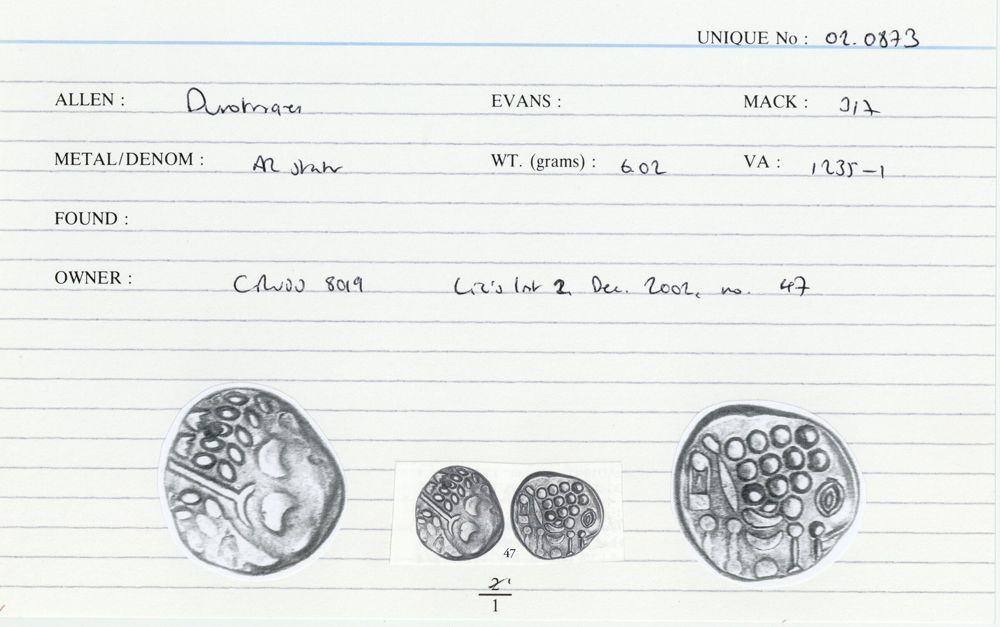 UNIQUE No : 02.0873
ALLEN : Durotriges EVANS : MACK : 317
METAL/DENOM : AR stater WT. (grams) : 6.02 VA : 1235-1
FOUND :
OWNER : 8019 Liz's list 2, Dec. 2002, no. 47
47
2
1